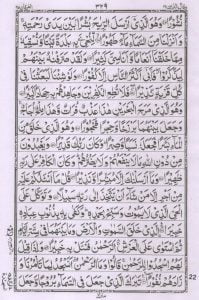 ٣٢٩
نُشُوْرًا وَهُوَ الَّذِيْٓ اَرْسَلَ الرِّيٰحَ بُشْرًۢا بَيْنَ يَدَيْ رَحْمَتِهٖ
وَاَنْزَلْنَا مِنَ السَّمَآءِ مَآءً طَهُوْرًا لِّنُحْيِۦَ بِهٖ بَلْدَةً مَّيْتًا وَّنُسْقِيَهٗ
مِمَّا خَلَقْنَآ اَنْعَامًا وَّاَنَاسِيَّ كَثِيْرًا وَلَقَدْ صَرَّفْنٰهُ بَيْنَهُمْ
لِيَذَّكَّرُوْا فَاَبٰٓى اَكْثَرُ النَّاسِ اِلَّا كُفُوْرًا وَلَوْ شِئْنَا لَبَعَثْنَا فِيْ
كُلِّ قَرْيَةٍ نَّذِيْرًا فَلَا تُطِعِ الْكٰفِرِيْنَ وَجَاهِدْهُمْ بِهٖ جِهَادًا
كَبِيْرًا وَهُوَ الَّذِيْ مَرَجَ الْبَحْرَيْنِ هٰذَا عَذْبٌ فُرَاتٌ وَّهٰذَا مِلْحٌ اُجَاجٌ
وَجَعَلَ بَيْنَهُمَا بَرْزَخًا وَّحِجْرًا مَّحْجُوْرًا وَهُوَ الَّذِيْ خَلَقَ مِنَ
الْمَآءِ بَشَرًا فَجَعَلَهٗ نَسَبًا وَّصِهْرًا وَكَانَ رَبُّكَ قَدِيْرًا وَيَعْبُدُوْنَ
مِنْ دُوْنِ اللّٰهِ مَا لَا يَنْفَعُهُمْ وَلَا يَضُرُّهُمْ وَكَانَ الْكَافِرُ عَلٰى رَبِّهٖ
ظَهِيْرًا وَمَآ اَرْسَلْنٰكَ اِلَّا مُبَشِّرًا وَّنَذِيْرًا قُلْ مَآ اَسْـَٔلُكُمْ عَلَيْهِ
مِنْ اَجْرٍ اِلَّا مَنْ شَآءَ اَنْ يَّتَّخِذَ اِلٰى رَبِّهٖ سَبِيْلًا وَتَوَكَّلْ عَلَى
الْحَيِّ الَّذِيْ لَا يَمُوْتُ وَسَبِّحْ بِحَمْدِهٖ وَكَفٰى بِهٖ بِذُنُوْبِ عِبَادِهٖ
خَبِيْرًا الَّذِيْ خَلَقَ السَّمٰوٰتِ وَالْاَرْضَ وَمَا بَيْنَهُمَا فِيْ سِتَّةِ اَيَّامٍ
ثُمَّ اسْتَوٰى عَلَى الْعَرْشِ اَلرَّحْمٰنُ فَسْـَٔلْ بِهٖ خَبِيْرًا وَاِذَا قِيْلَ
لَهُمُ اسْجُدُوْا لِلرَّحْمٰنِ قَالُوْا وَمَا الرَّحْمٰنُ اَنَسْجُدُ لِمَا تَاْمُرُنَا وَ
زَادَهُمْ نُفُوْرًا تَبٰرَكَ الَّذِيْ جَعَلَ فِي السَّمَآءِ بُرُوْجًا وَّجَعَلَ
22